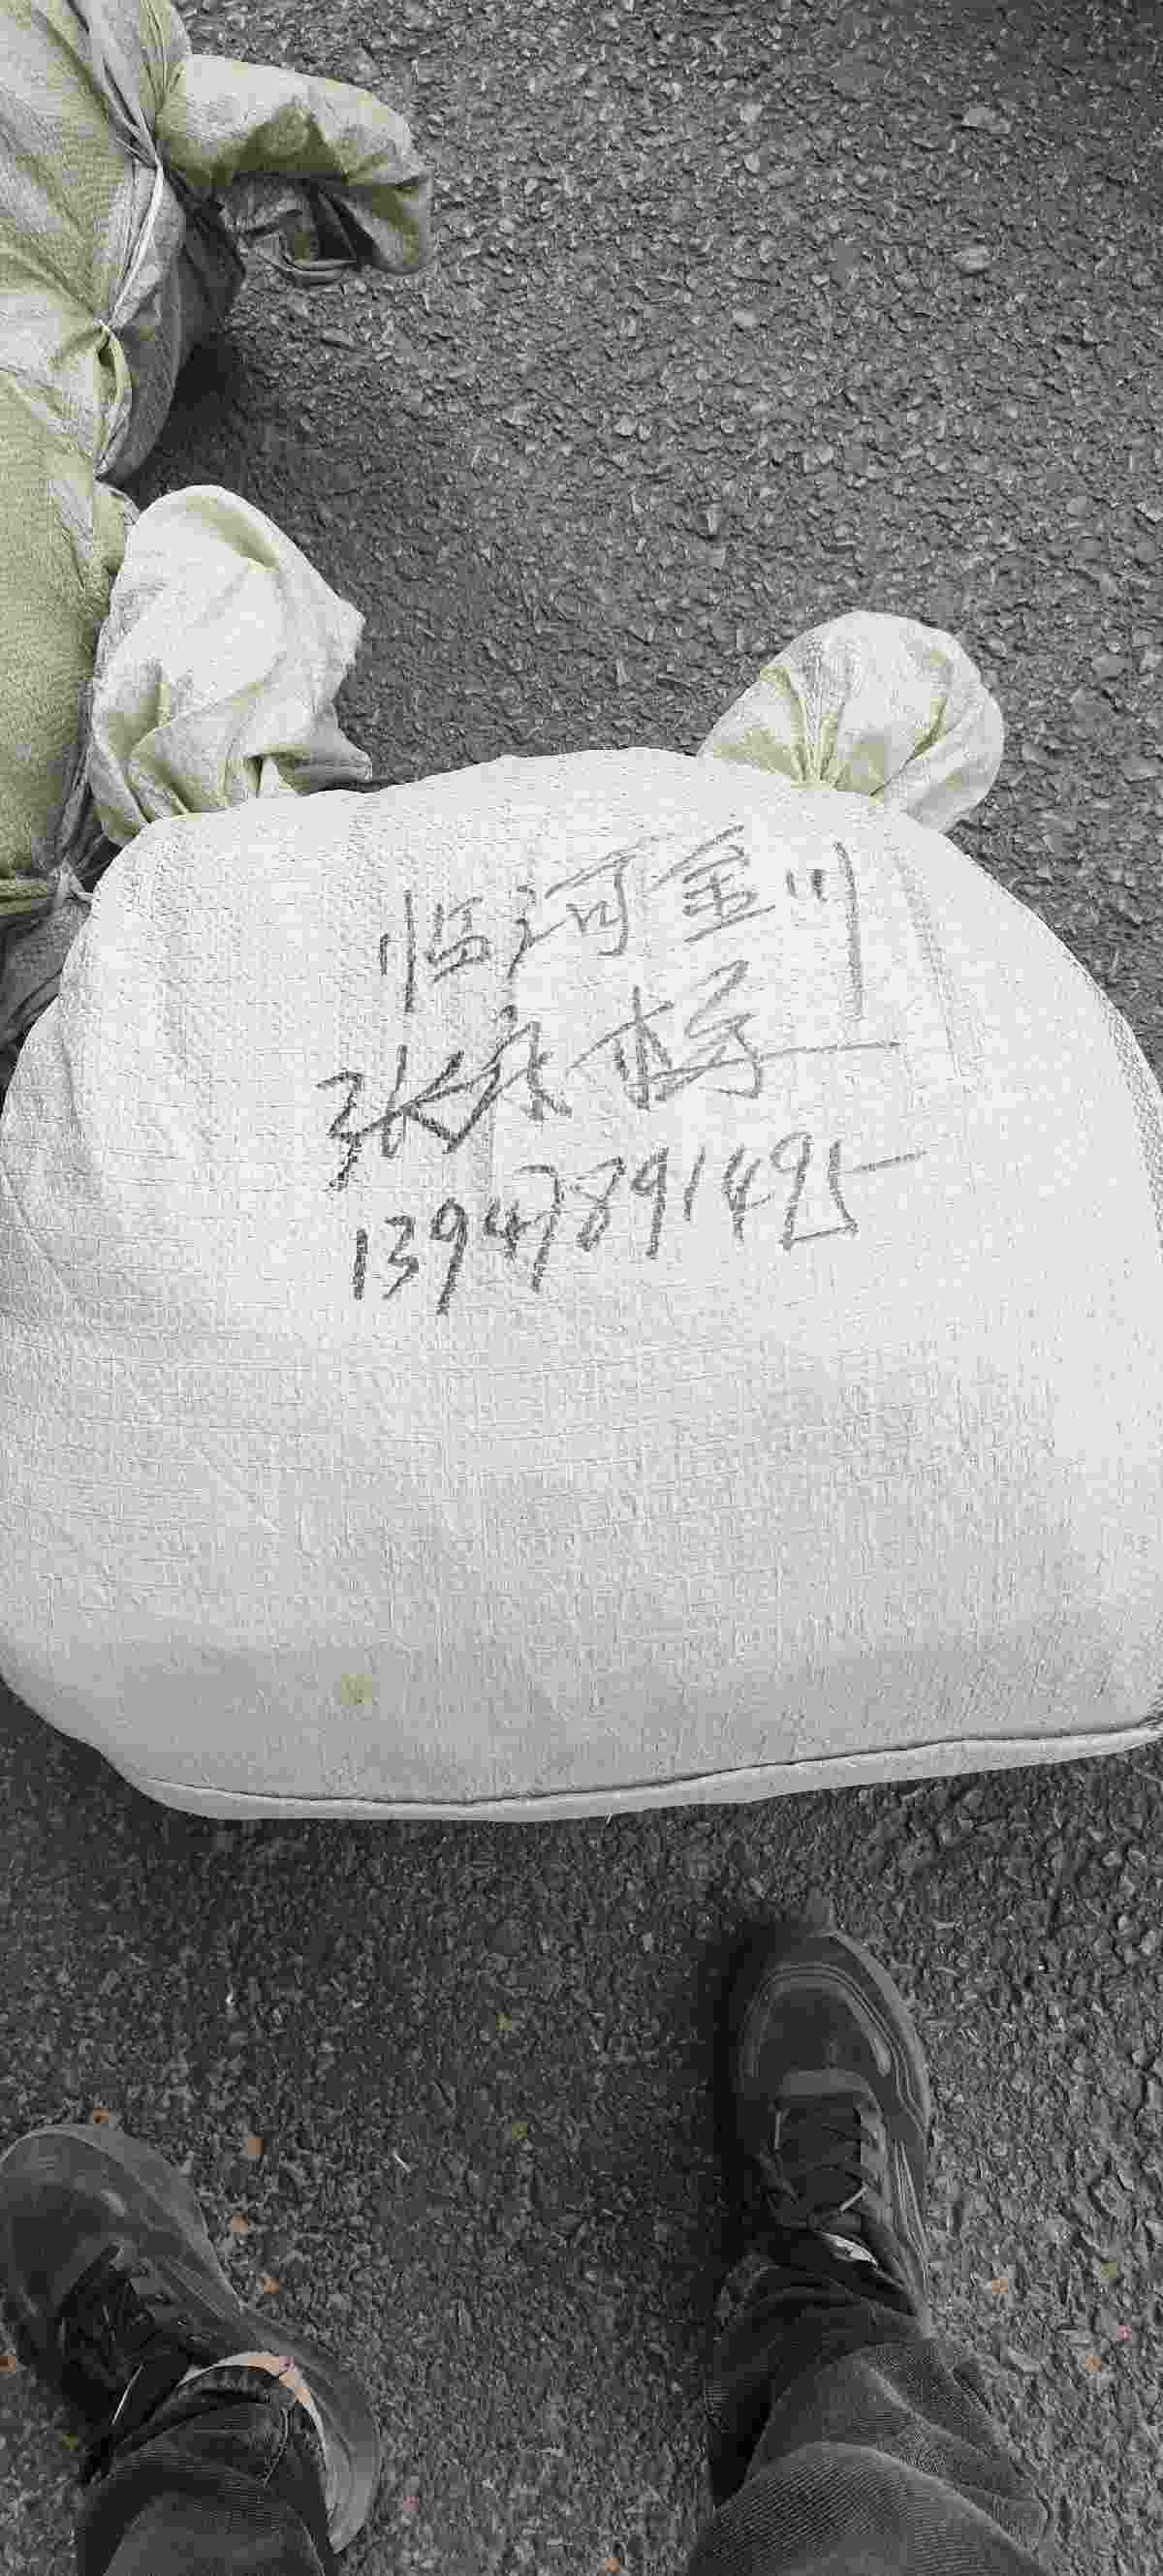 临河金川
张永梅
13947891491